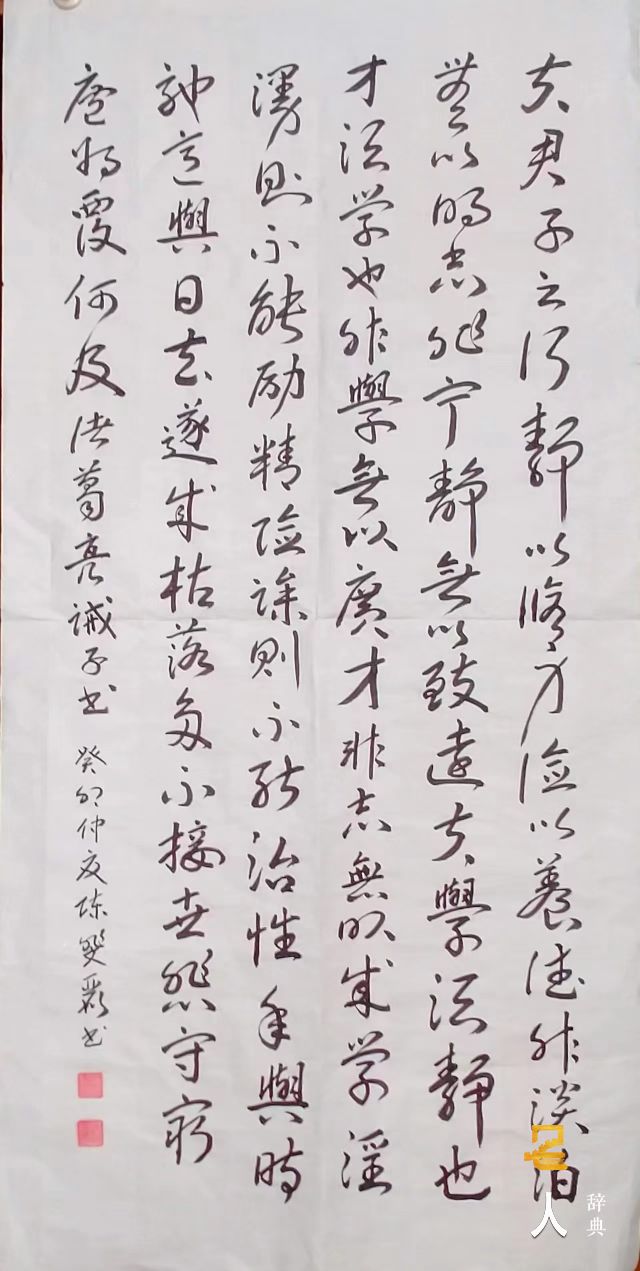 夫君子之行靜以脩身儉以養德非淡泊
無以明志非宁靜無以致遠夫學須靜也
才須学也非學無以廣才非志無以成学淫
漫則不能励精险躁則不能治性年與時
馳意與日去遂成枯落多不接世悲守窮
廬将覆何及诸葛亮誡子书
癸卯仲夏陈雙书
名人辞典